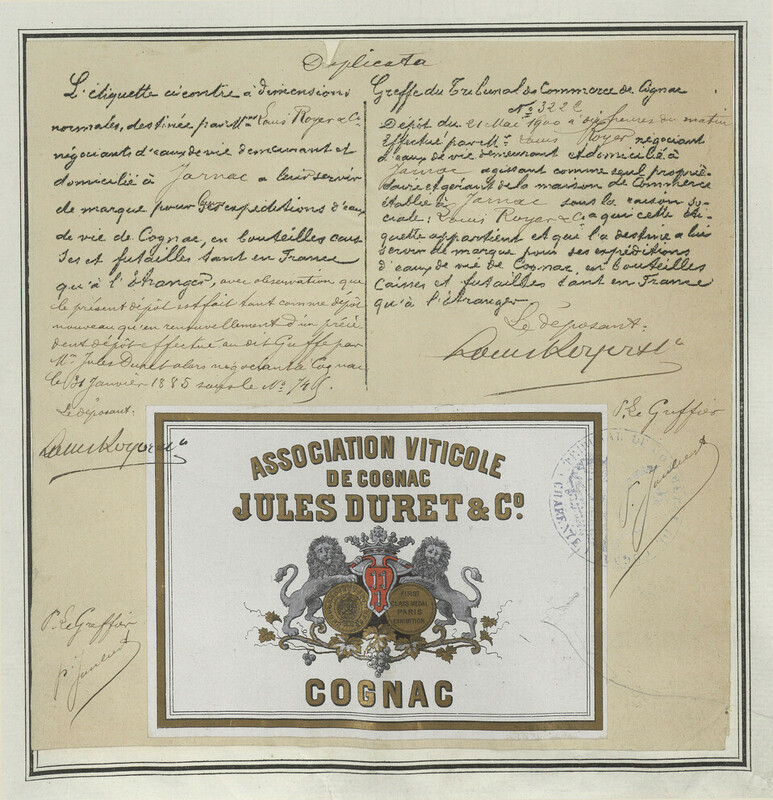 Duplicata
L'étiquette ci contre à dimensions
normales, destinée par Mr Louis Royer & Co
négociants d'eaux de vie demeurant et
domicilié à Jarnac a leur servir
de marque pour les expeditions d'eaux
de vie de Cognac, en bouteilles cais
ses et futailles tant en France
qu'à l'Étranger, avec observation que
le présent dépôt est fait tant comme dépôt
nouveau qu'en renouvellement d'un précé
dent dépôt effectué au dit Greffe par
Mr Jules Duret alors négociant à Cognac
le 31 Janvier 1885 sous le No 745.
Le déposant:
Louis Royer & Co
P. Le Greffier
Greffe du Tribunal de Commerce de Cognac
No 3222
Dépôt du 21 Mai 1900 à dix heures du matin
Effectué par Mr Louis Royer négociant
d'eaux de vie demeurant et domicilié à
Jarnac agissant comme seul proprié-
taire et gérant de la maison de Commerce
établie à Jarnac sous la raison so-
ciale: Louis Royer & Co a qui cette éti-
quette appartient et qui l'a destine a lui
servir de marque pour ses expéditions
d'eaux de vie de Cognac, en bouteilles
Caisses et futailles tant en France
qu'à l'étranger
Le déposant:
Louis Royer & Co
P. Le Greffier
TRIBUNAL DE COMMERCE
CHARENTE
ASSOCIATION VITICOLE
DE COGNAC
JULES DURET & Co.
JJ
FIRST
CLASS MEDAL
PARIS
EXHIBITION
COGNAC